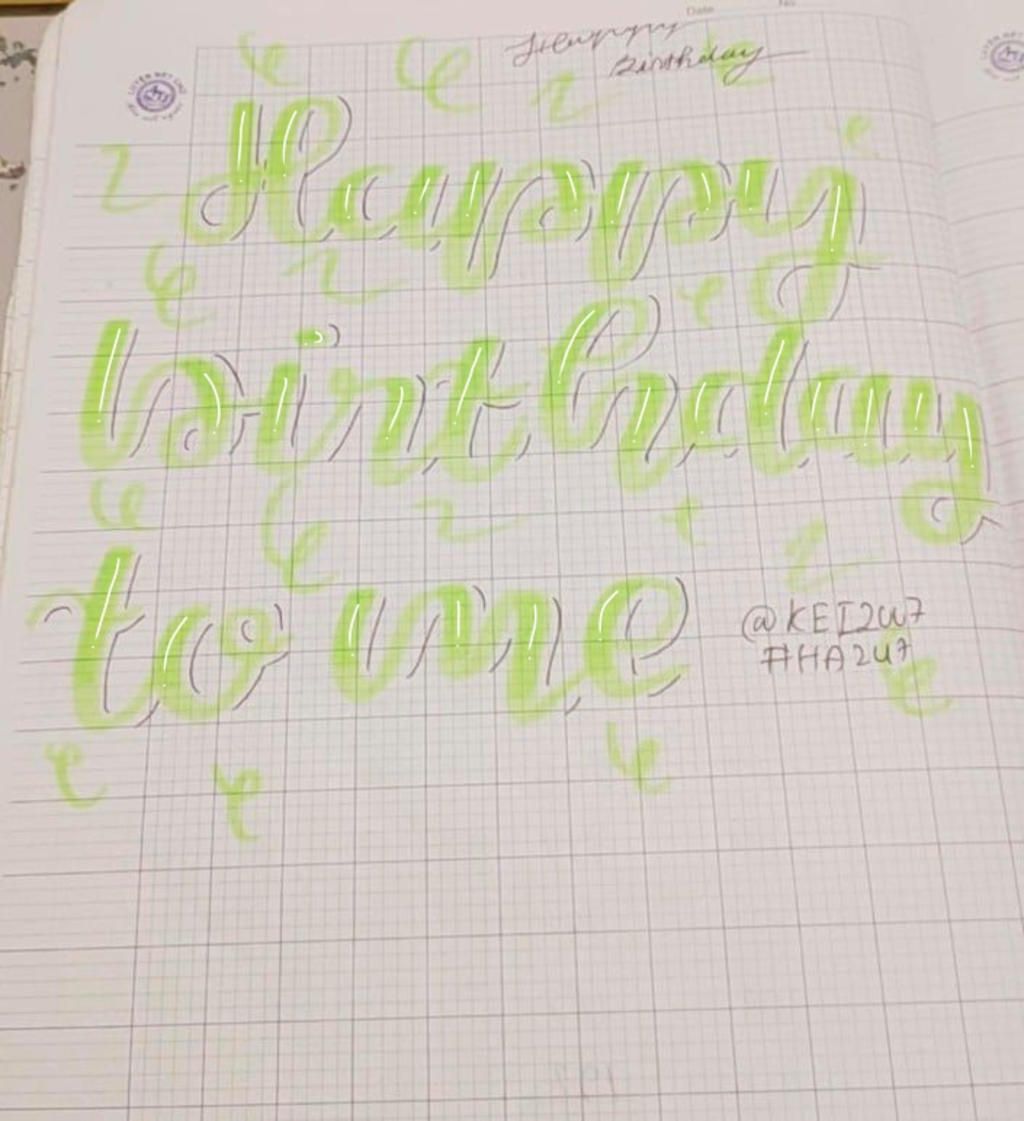 Date No
Happy
Birthday
Happy
birthday
to me
@KEI2W7
#HA2U7